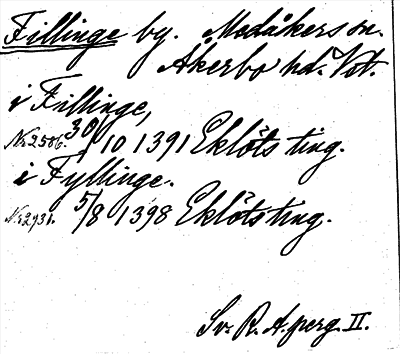 Fillinge by. Medåkers sn.
Åkerbo hd. Vst.
i Fillinge,
Nr 2506. 30/10 1391 Eklöts ting.
i Fyllinge.
Nr 2931. 5/8 1398 Eklöts ting.
Sv. R. A. perg. II.